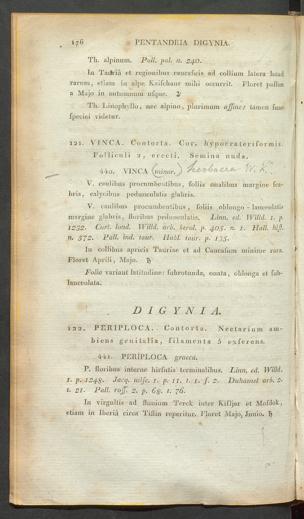 176 PENTANDRIA DIGYNIA.
Th. alpinum. Pall. pal. n. 240.
In Tauria et regionibus caucasicis ad collium latera haud
rarum, etiam in alpe Kaischaur mihi occurrit. Floret passim
a Majo in autumnum usque. ♃
Th. Linophyllo, nec alpino, plurimum affine; tamen suae
speciei videtur.
121. VINCA. Contorta. Cor. hypocrateriformis.
Folliculi 2, erecti. Semina nuda.
440. VINCA (minor.) herbacea W. K.
V. caulibus procumbentibus, foliis ovalibus margine sca-
bris, calycibus pedunculatis glabris.
V. caulibus procumbentibus, foliis oblongo-lanceolatis
margine glabris, floribus pedunculatis. Linn. ed. Willd. 1. p.
1232. Curt. lond. Willd. arb. berol. p. 405. n. 1. Hall. hist.
n. 572. Pall. ind. taur. Habl. taur. p. 135.
In collibus apricis Tauriae et ad Caucasum minime rara.
Floret Aprili, Majo. ♄
Folio variant latitudine: subrotunda, ovata, oblonga et sub-
lanceolata.
DIGYNIA.
122. PERIPLOCA. Contorta. Nectarium am-
biens genitalia, filamenta 5 exserens.
441. PERIPLOCA graeca.
P. floribus interne hirsutis terminalibus. Linn. ed. Willd.
1. p. 1248. Jacq. misc. 1. p. 11. t. 1. f. 2. Duhamel arb. 2.
t. 21. Pall. ross. 2. p. 68. t. 76.
In virgultis ad fluvium Terek inter Kisljar et Mosdok,
etiam in Iberiâ circa Tiflin reperitur. Floret Majo, Junio. ♄